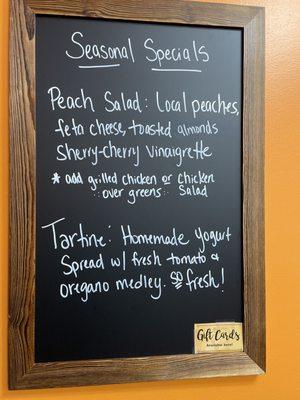 Seasonal Specials
Peach Salad: Local peaches,
feta cheese, toasted almonds
Sherry-Cherry Vinaigrette
* add grilled chicken or Chicken
over greens Salad
Tartine: Homemade Yogurt
Spread w/ fresh tomato &
oregano medley. so fresh!
Gift Cards
Available here!